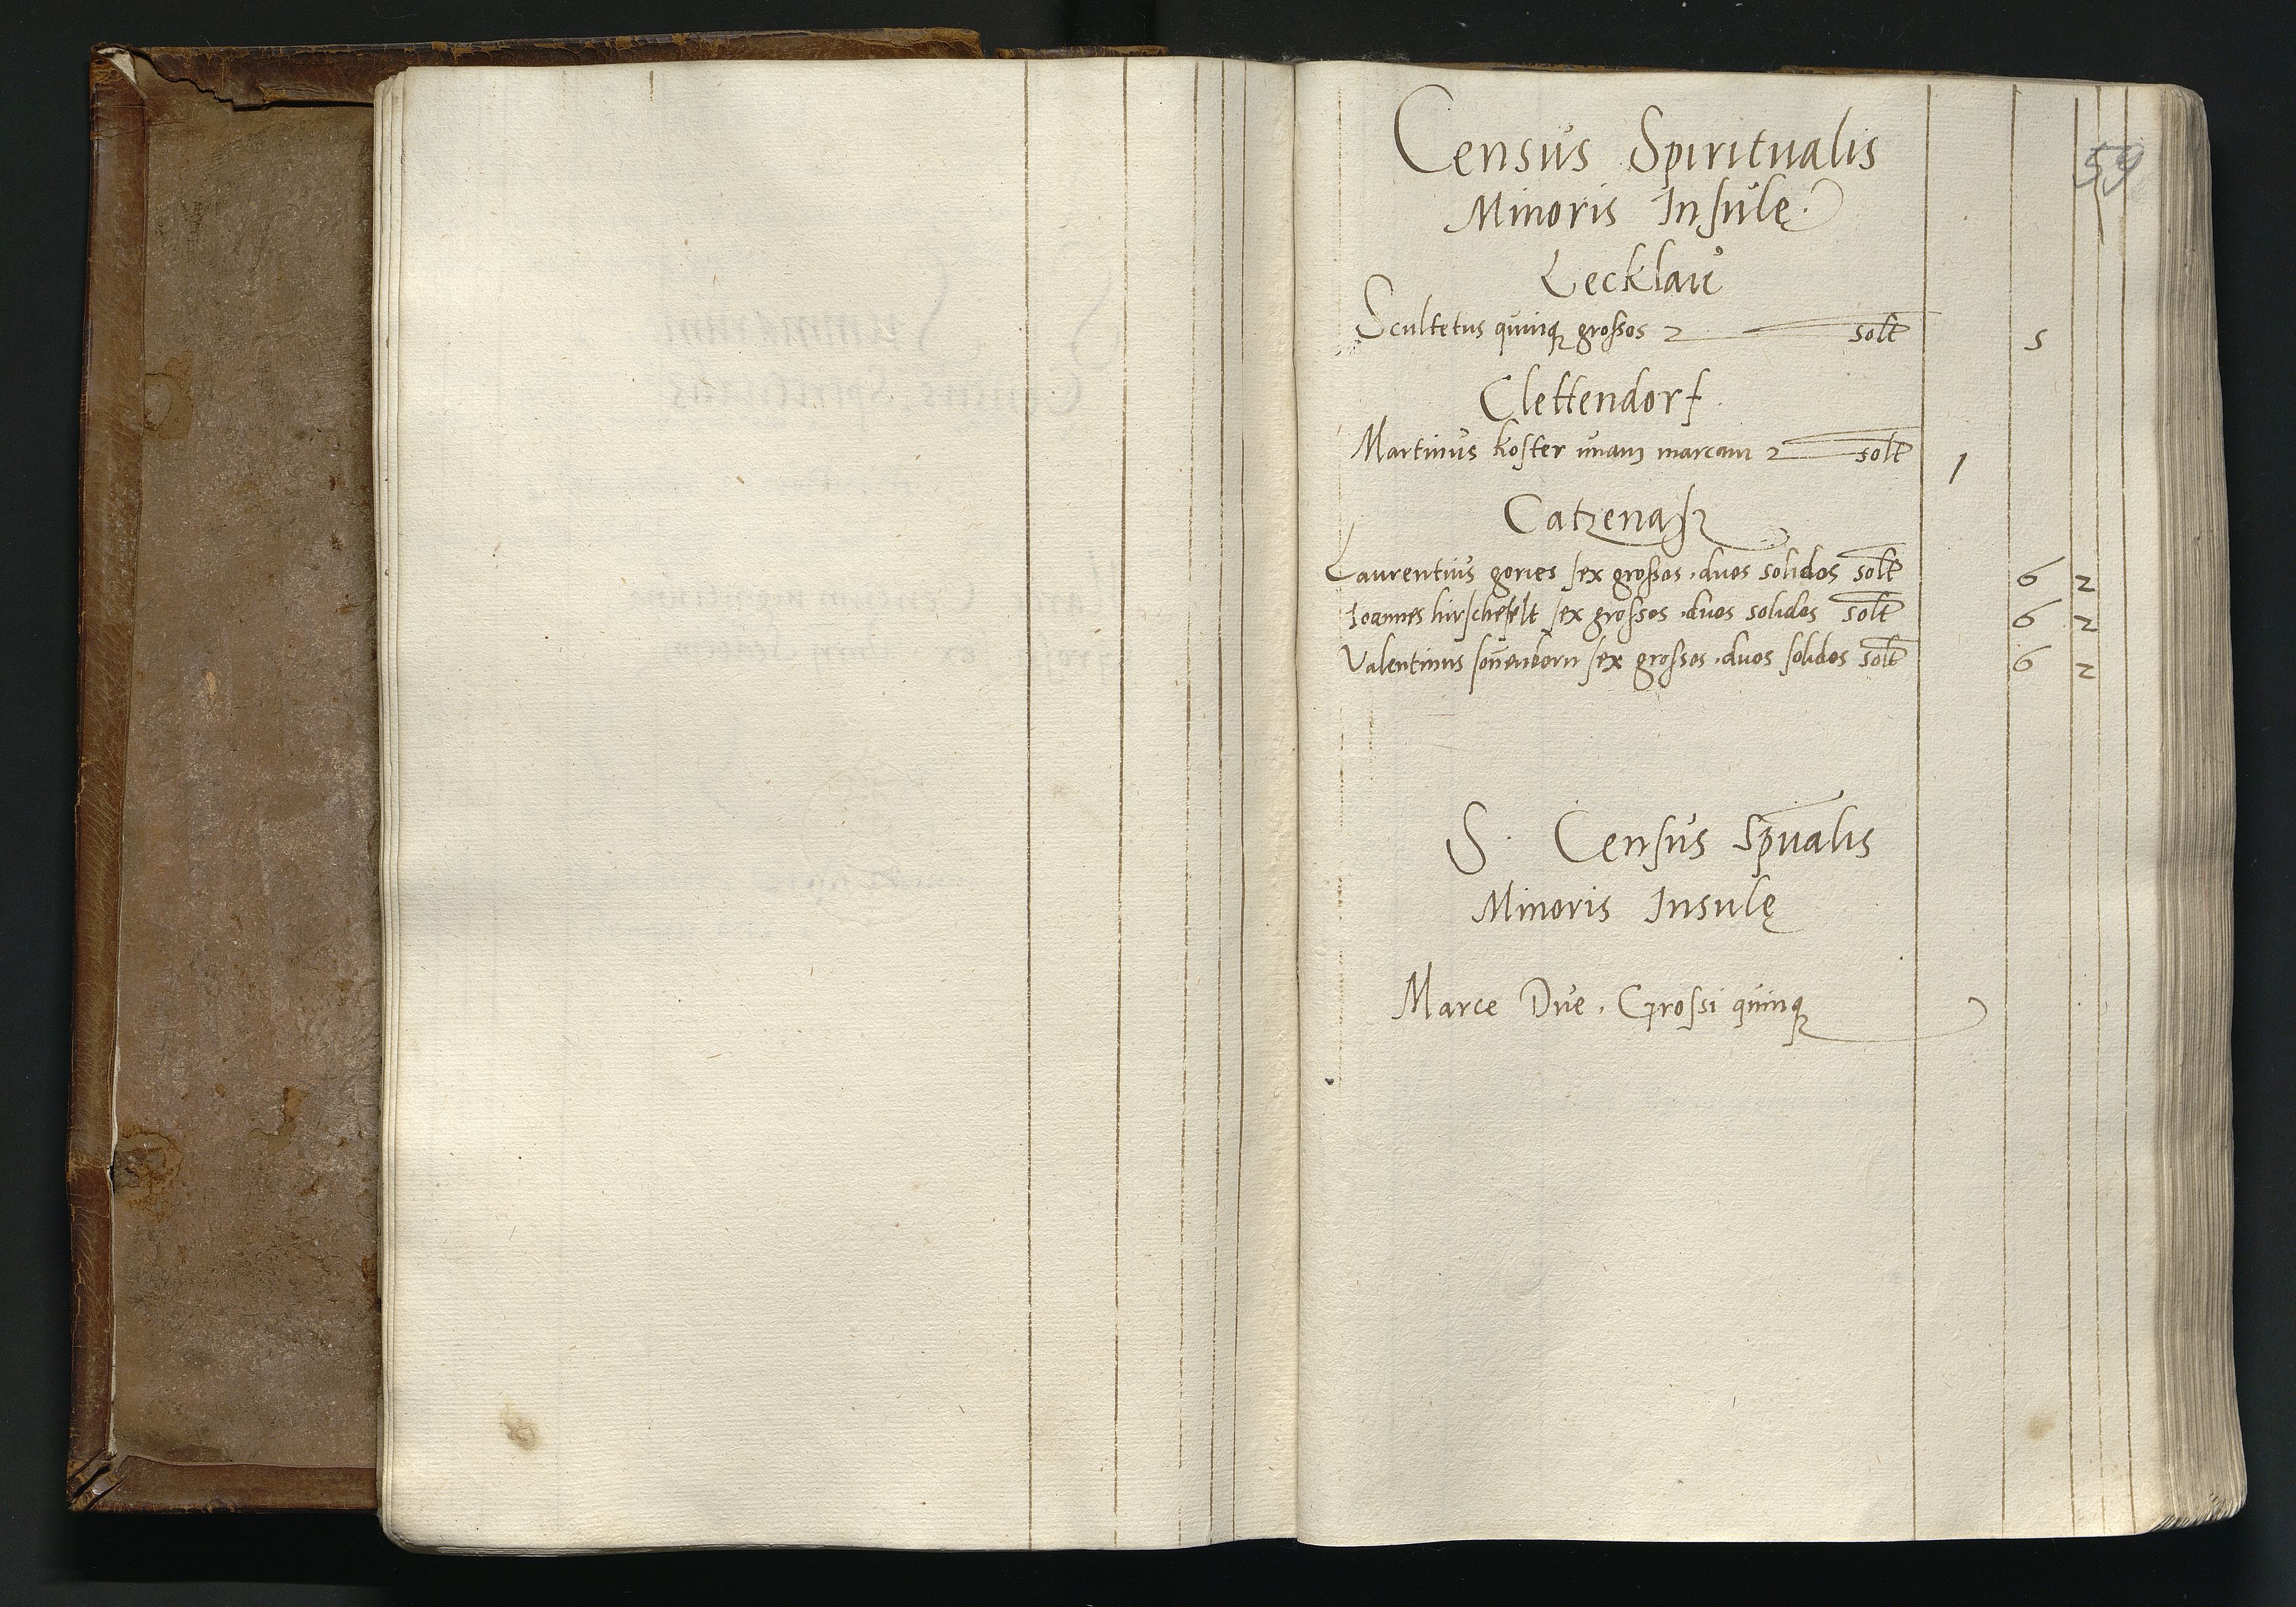 59
Census Spiritualis
Minoris Insulę.
Lecklaw
Scultetus quinq grossos 2 solt 5
Clettendorf
Martinus koster unam marcam 2 solt 1
Catzenaß
Laurentius gories sex grossos . duos solidos solt 6 2
Ioannes hirschefelt sex grossos . duos solidos solt 6 2
Valentinus soñenborn sex grossos . duos solidos solt 6 2
S. Census Spualis
Minoris Insulę
Marce Due . Grossi quinq